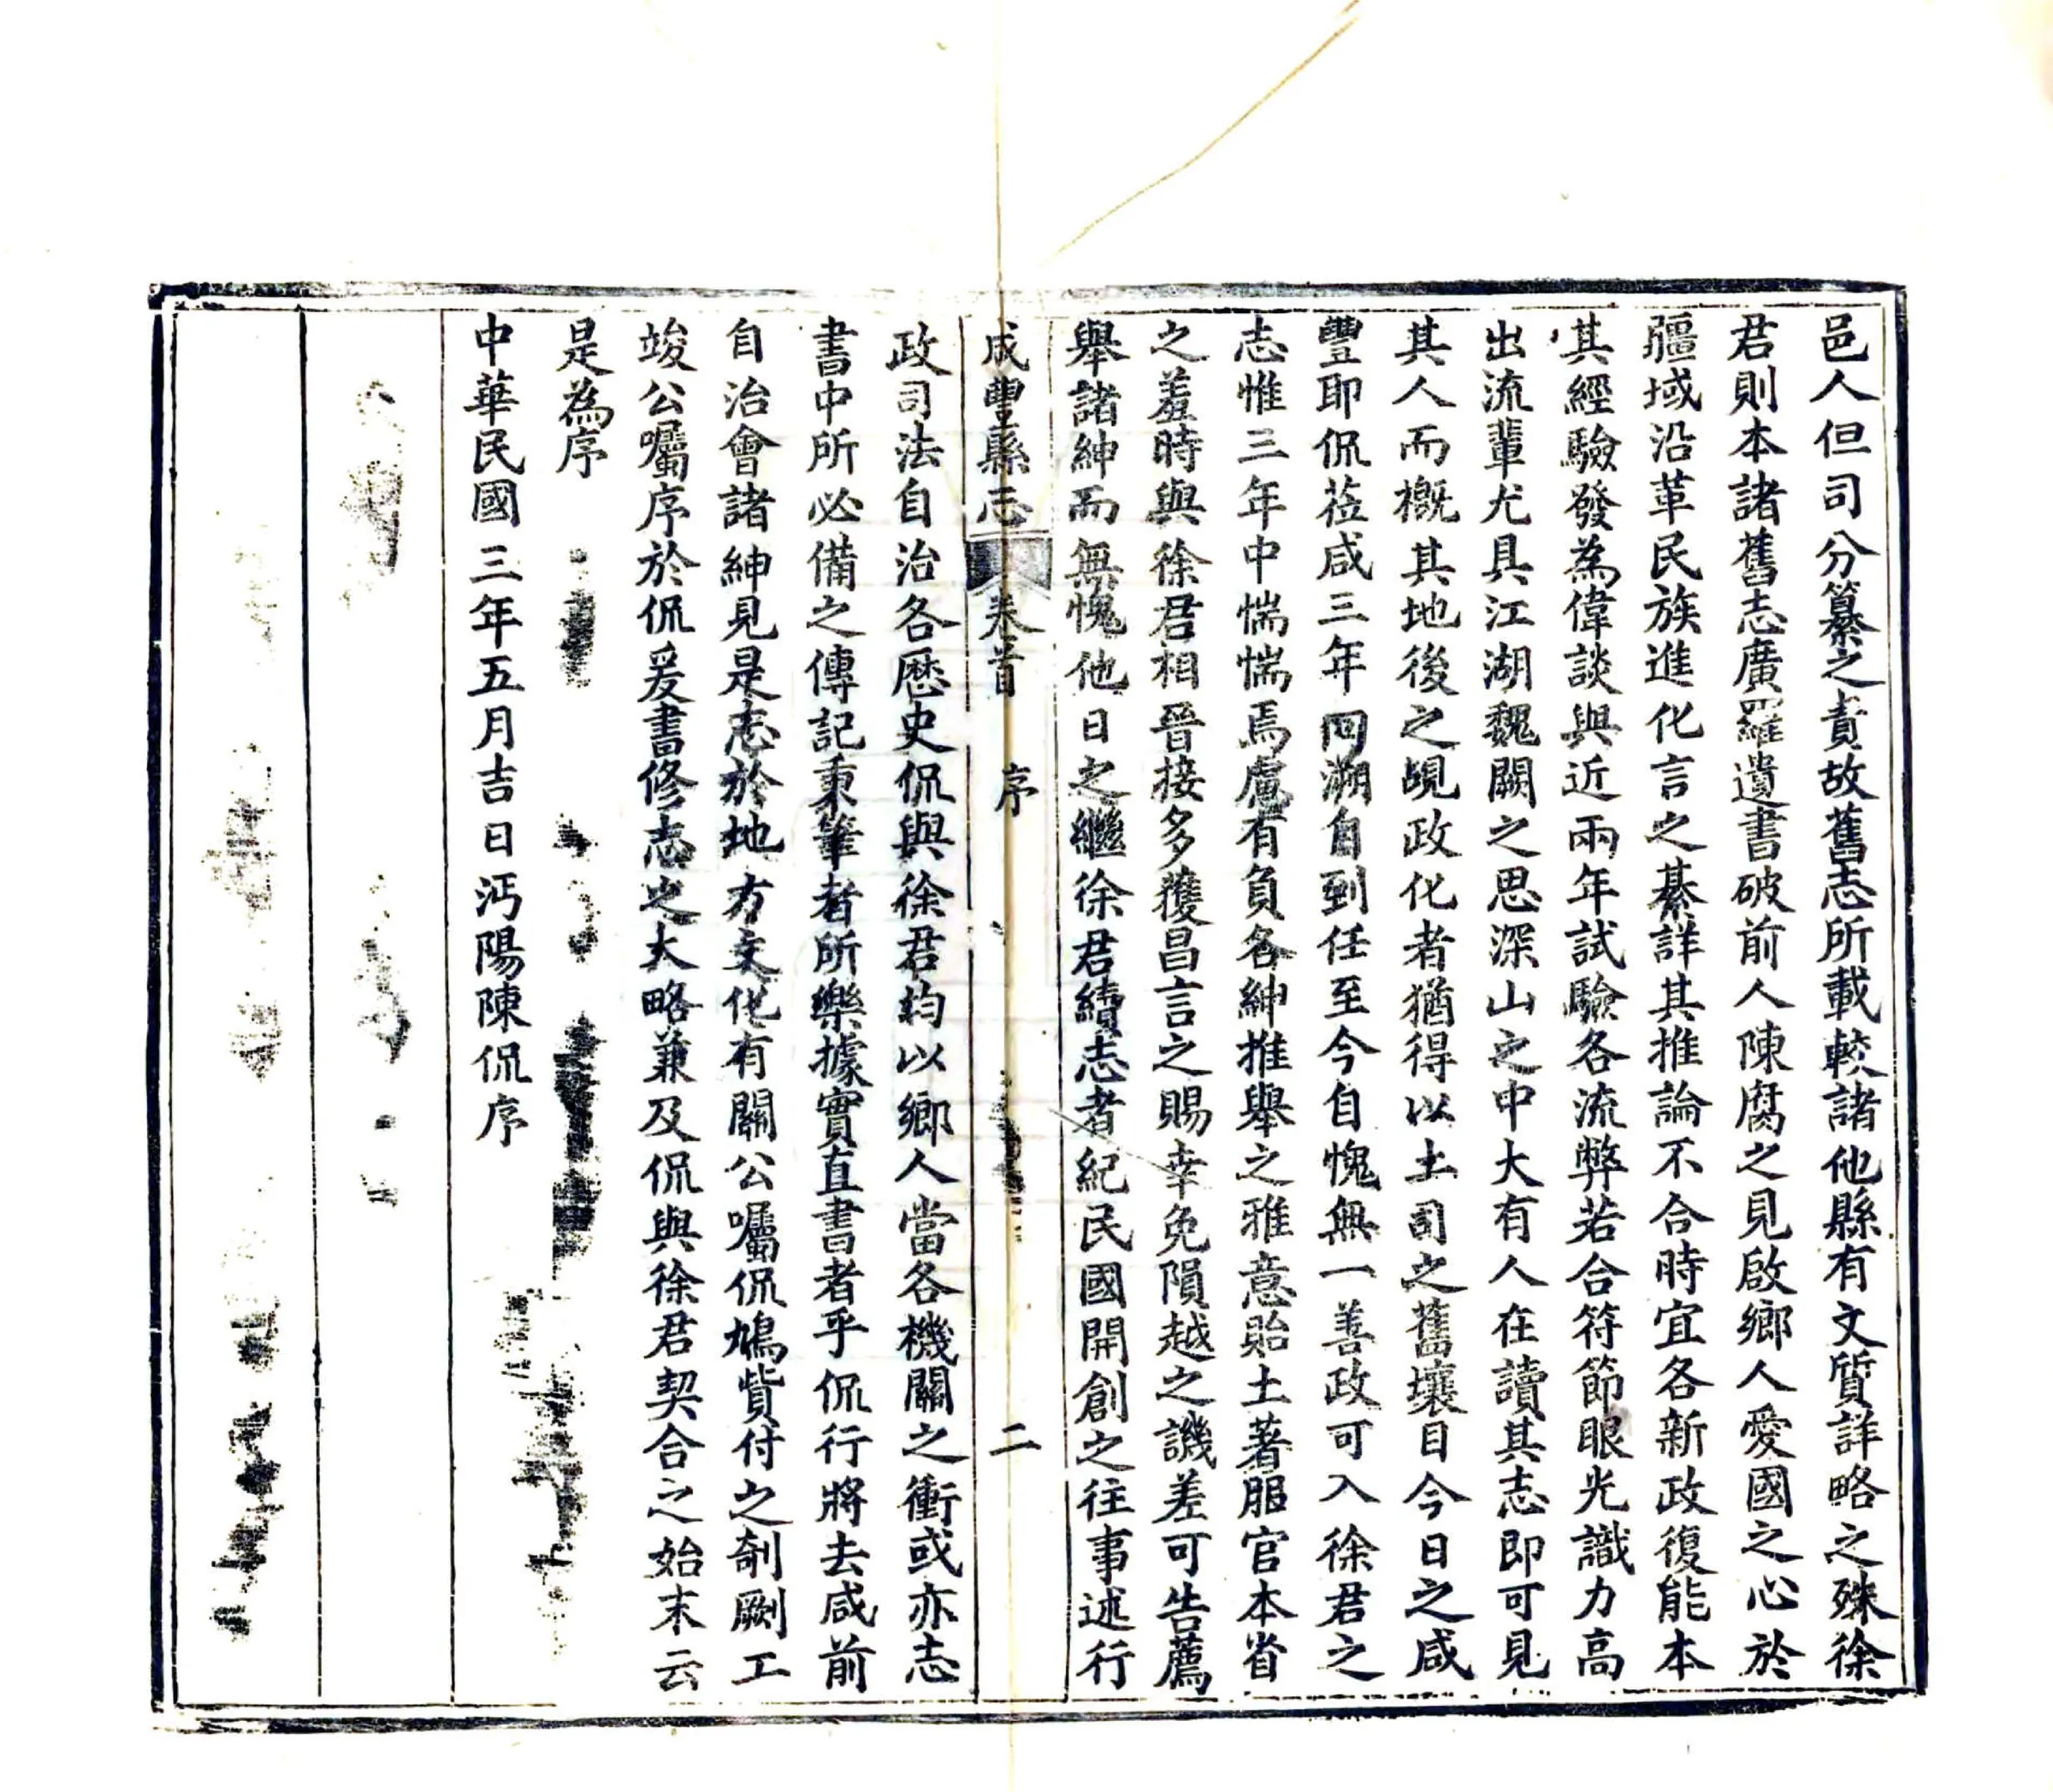 邑人但司分纂之責故舊志所載較諸他縣有文質詳略之殊徐
君則本諸舊志廣羅遺書破前人陳腐之見啟鄉人愛國之心於
疆域沿革民族進化言之綦詳其推論不合時宜各新政復能本
其經驗發為偉談與近兩年試驗各流弊若合符節眼光識力高
出流輩尤具江湖魏闕之思深山之中大有人在讀其志即可見
其人而概其地後之覘政化者猶得以土司之舊壤目今日之咸
豐耶侃蒞咸三年回溯自到任至今自愧無一善政可入徐君之
志惟三年中惴惴焉慮有負各紳推舉之雅意貽土著服官本省
之羞時與徐君相晉接多獲昌言之賜幸免隕越之譏差可告薦
舉諸紳而無愧他日之繼徐君續志者紀民國開創之往事述行
咸豐縣志 卷首 序 二
政司法自治各歷史侃與徐君均以鄉人當各機關之衝或亦志
書中所必備之傳記秉筆者所樂據實直書者乎侃行將去咸前
自治會諸紳見是志於地方文化有關公囑侃鳩貲付之剞劂工
竣公囑序於侃爰書修志之大略兼及侃與徐君契合之始末云
是為序
中華民國三年五月吉日沔陽陳侃序